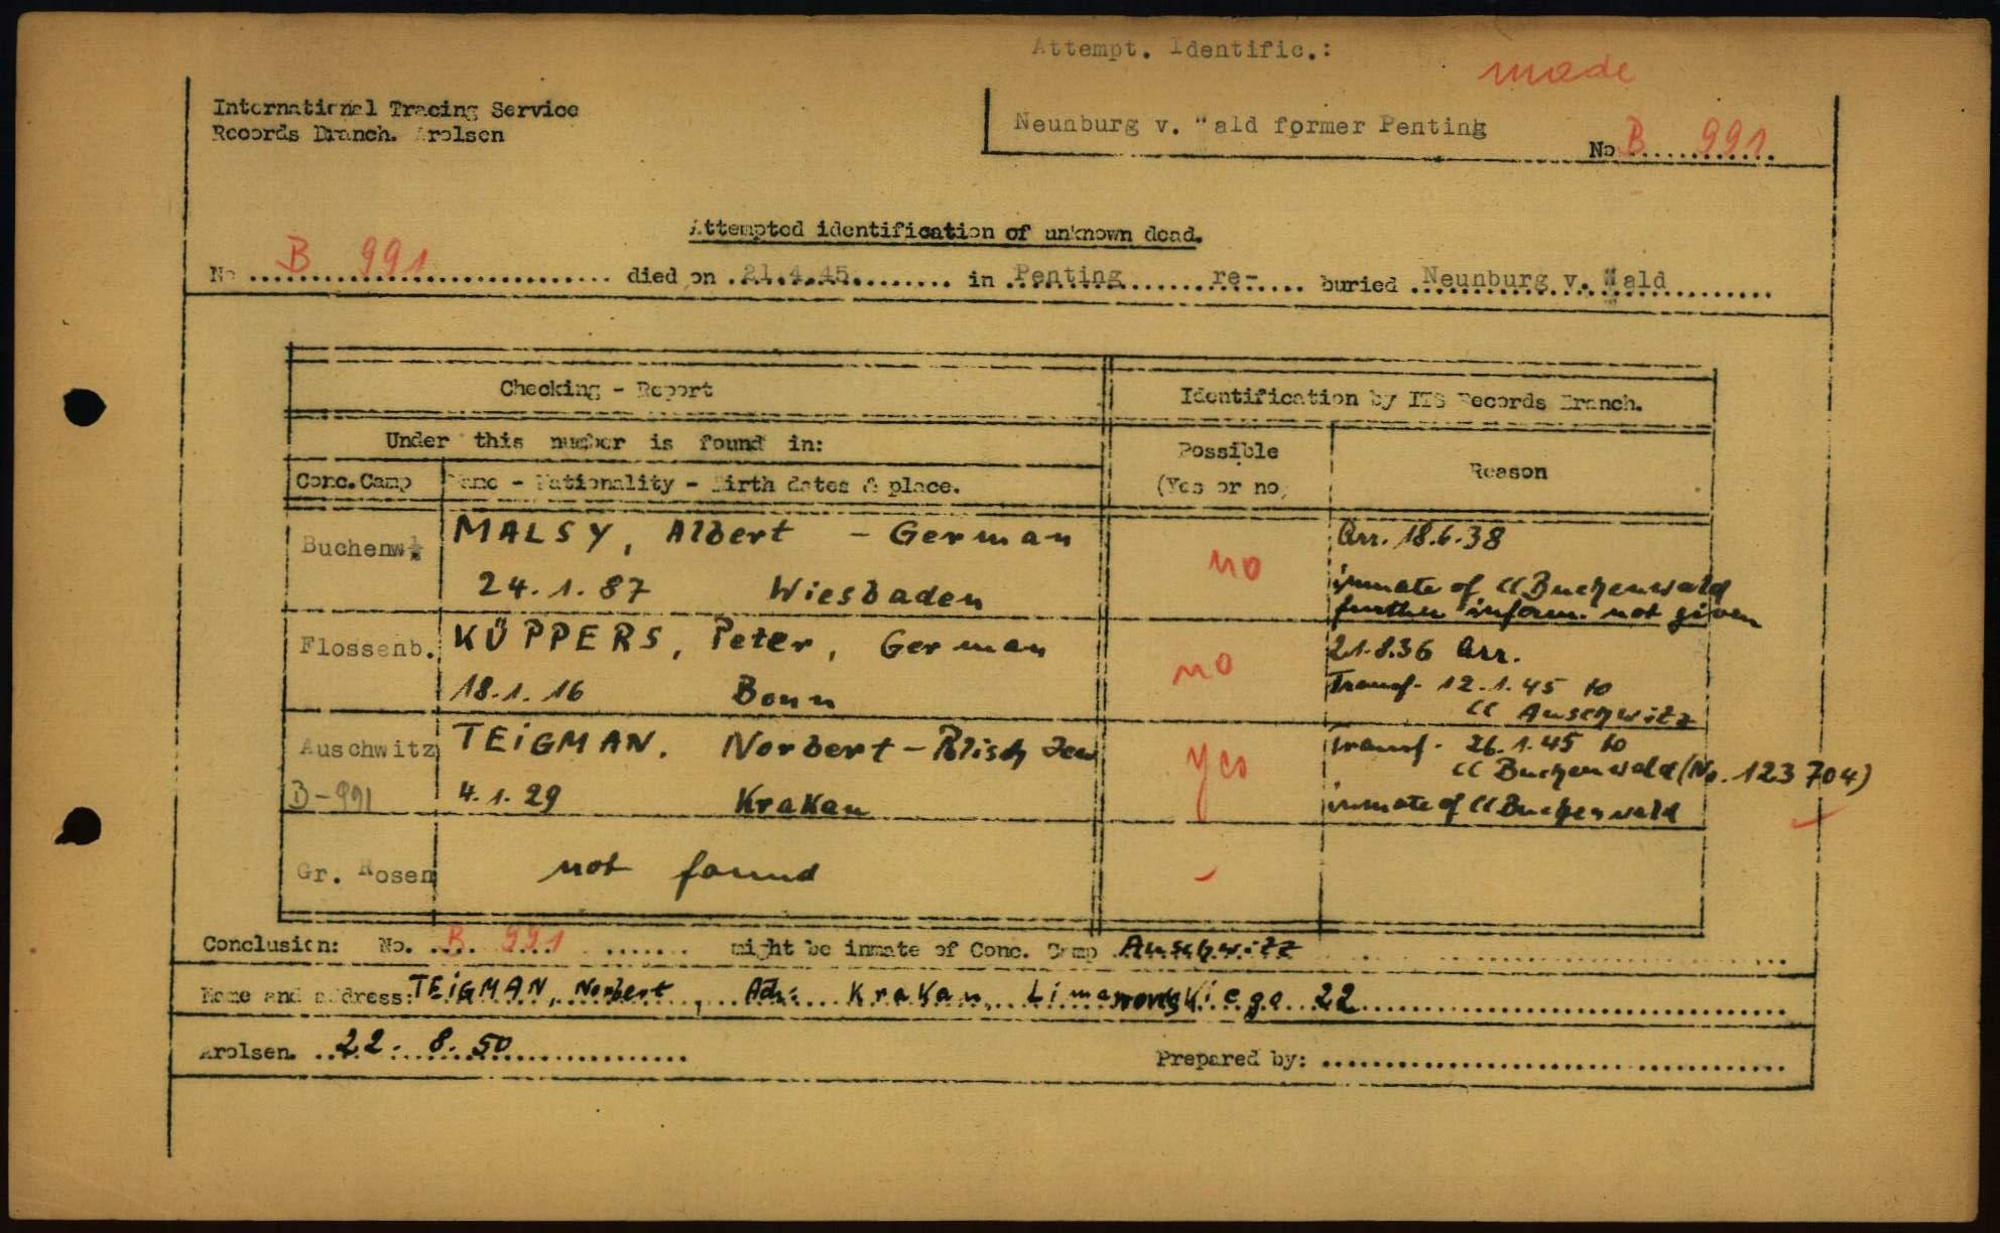 Attempt. Identific.:
made
International Tracing Service
Records Branch. Arolsen
Neunburg v. Wald former Penting
No B 991
Attempted identification of unknown dead.
No B 991 died on 21.4.45. in Penting re- buried Neunburg v. Wald
Checking - Report
Identification by ITS Records Branch.
Under this number is found in:
Possible
(Yes or no)
Reason
Conc. Camp
Name - Nationality - Birth dates & place.
Buchenw.
MALSY, Albert - German
24.1.87 Wiesbaden
no
Arr. 18.6.38
inmate of CC Buchenwald
further inform. not given
Flossenb.
KÜPPERS, Peter, German
18.1.16 Bonn
no
21.8.36 Arr.
Transf. 12.1.45 to
CC Auschwitz
Auschwitz
B-991
TEIGMAN, Norbert - Polish Jew
4.1.29 Krakau
yes
transf. 26.1.45 to
CC Buchenwald (No. 123704)
inmate of CC Buchenwald
Gr. Rosen
not found
-
Conclusion: No. B 991 might be inmate of Conc. Camp Auschwitz
Name and address: TEIGMAN, Norbert, Adr. Krakau, Limanowskiego 22
Arolsen. 22. 8. 50
Prepared by: